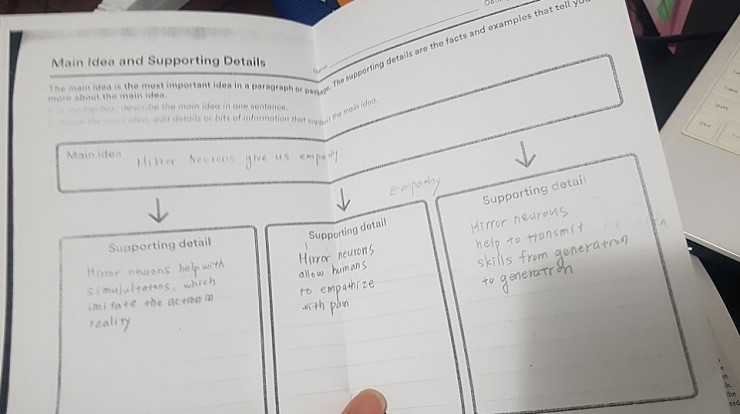 Name
Main Idea and Supporting Details
The main idea is the most important idea in a paragraph or passage. The supporting details are the facts and examples that tell you
more about the main idea.
describe the main idea in one sentence.
add details or bits of information that support the main idea.
Main idea
Mirror Neurons give us empathy
empathy
Supporting detail
Mirror neurons help with
which
imitate the action in
reality
Supporting detail
Mirror neurons
allow humans
to empathize
with pain
Supporting detail
Mirror neurons
help to transmit
skills from generation
to generation